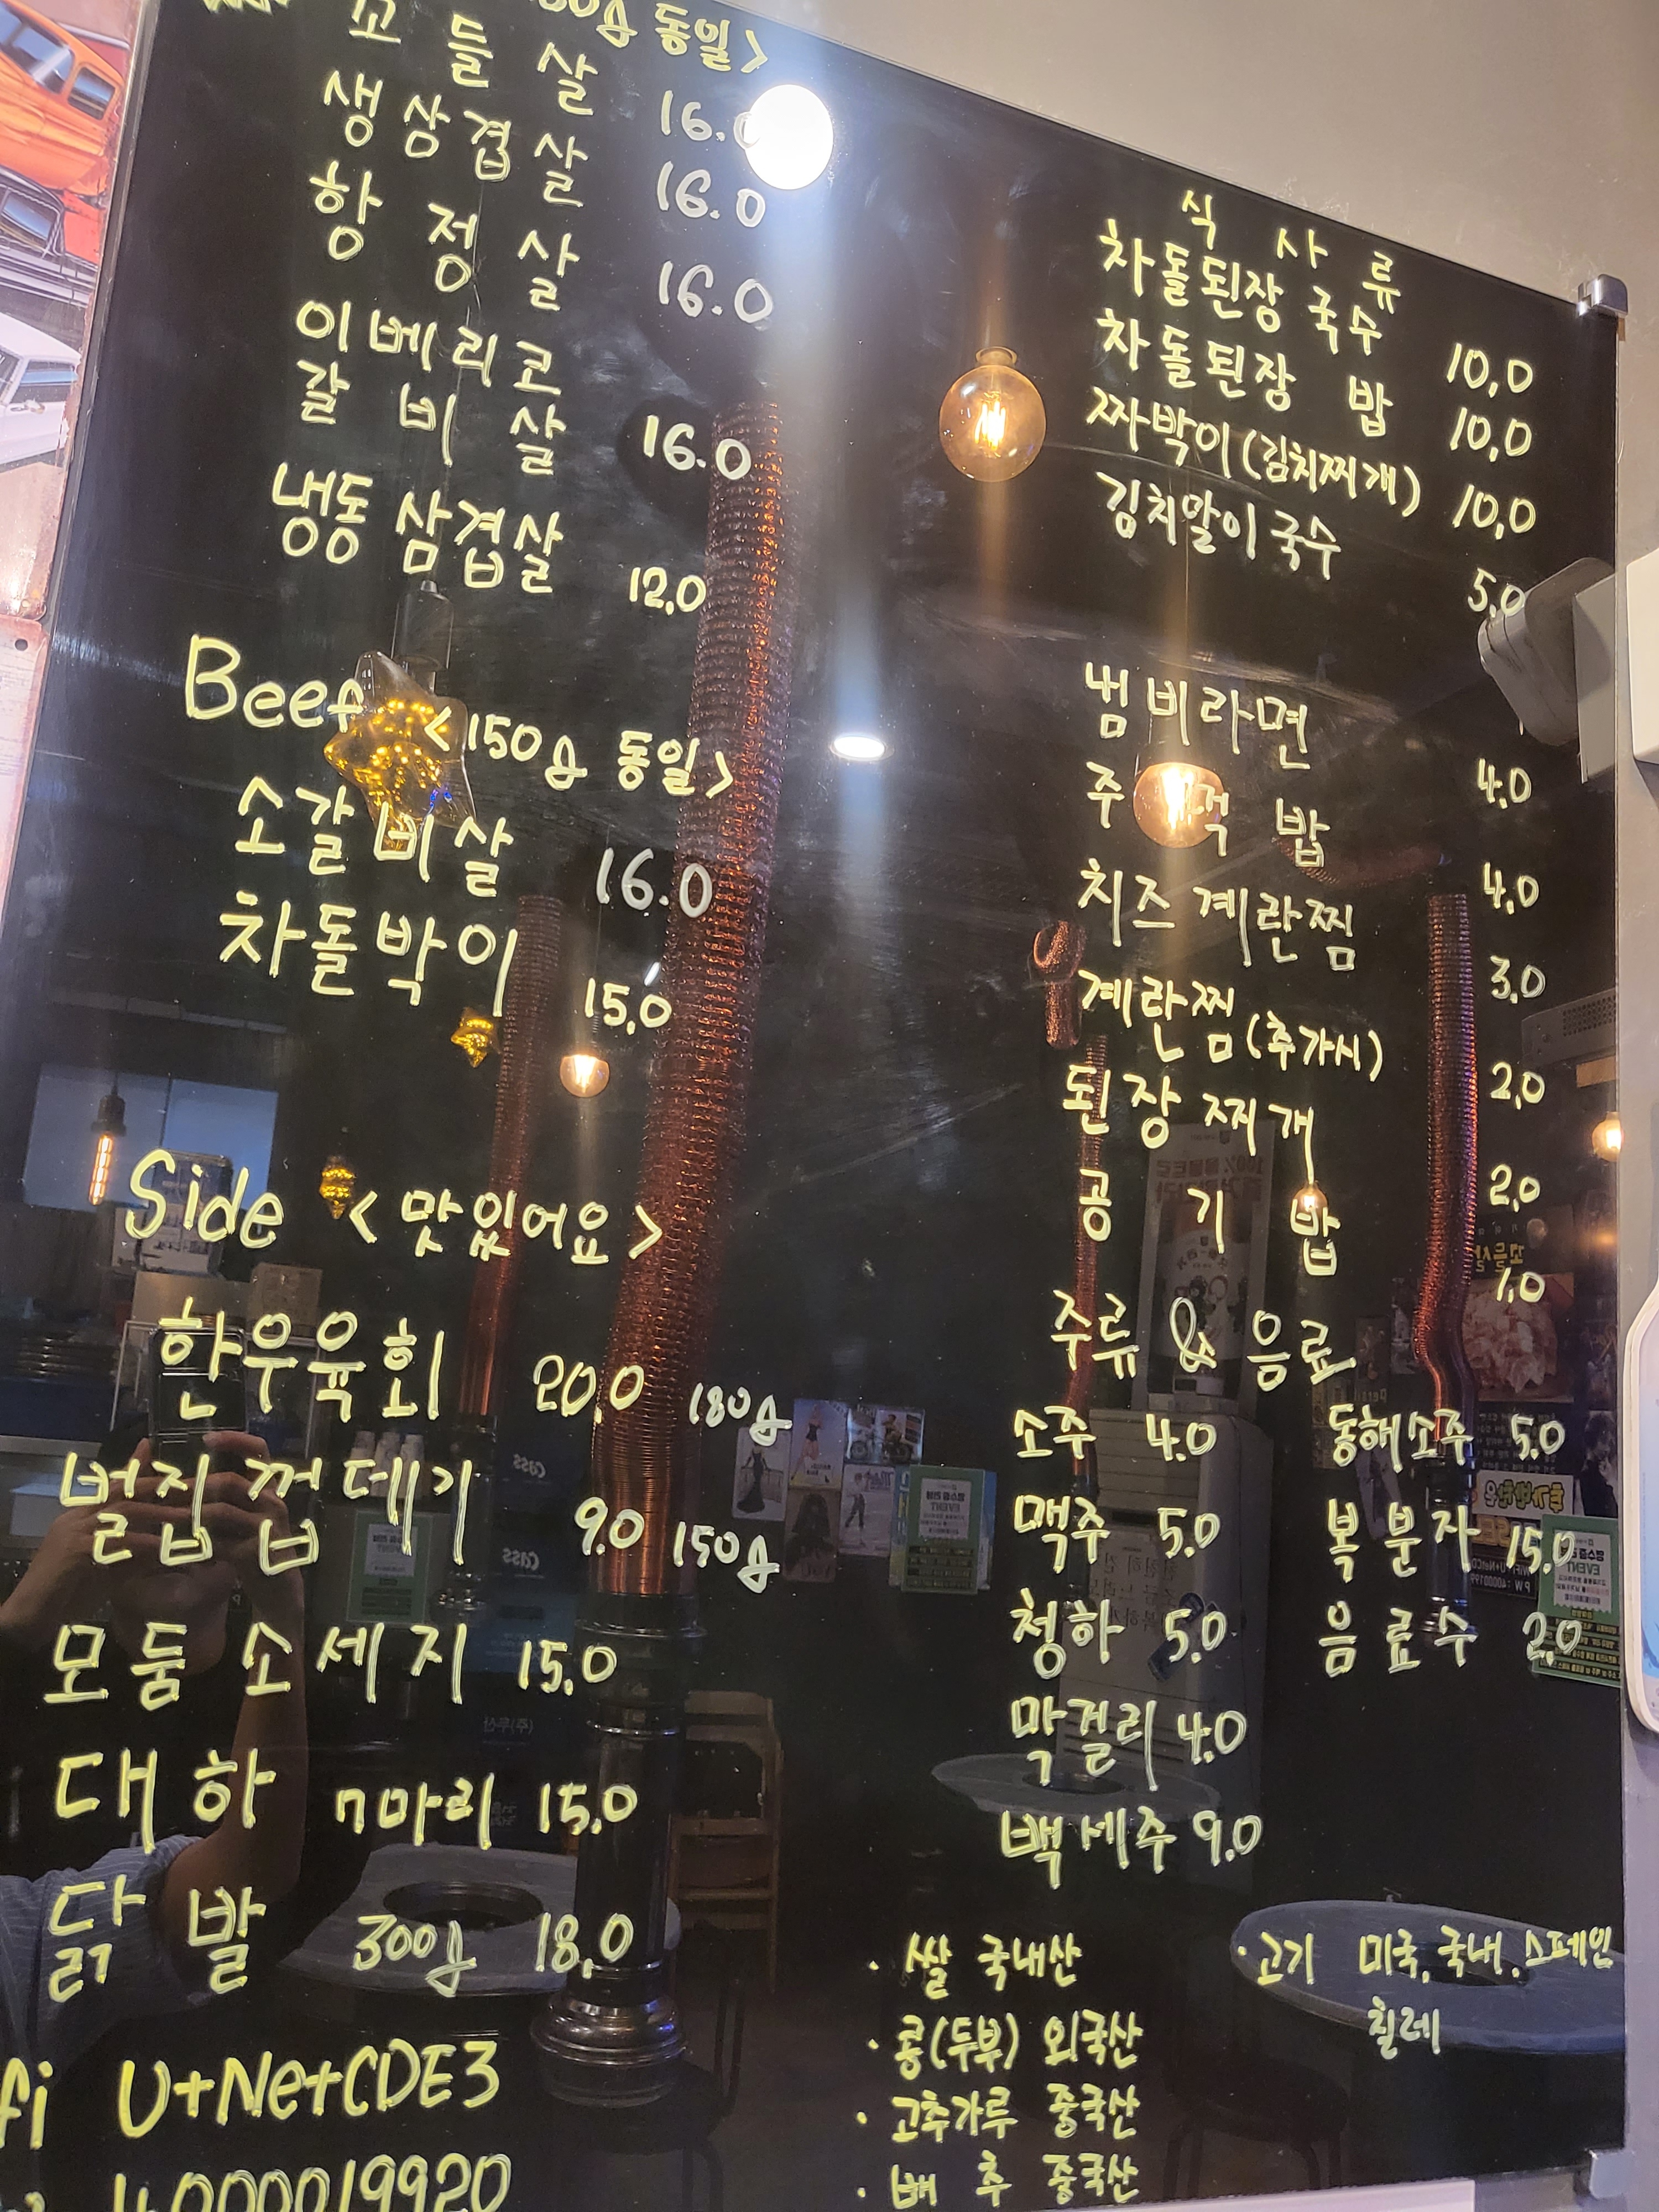 동일>
꼬들살 16.0
생삼겹살 16.0
항정살 16.0
이베리코
갈비살 16.0
냉동삼겹살 12.0
Beef <150g 동일>
소갈비살 16.0
차돌박이 15.0
Side <맛있어요>
한우육회 20.0 180g
벌집껍데기 9.0 150g
모둠소세지 15.0
대하 7마리 15.0
닭발 300g 18.0
fi U+NetCDE3
4000019920
식사류
차돌된장국수 10.0
차돌된장 밥 10.0
짜박이(김치찌개) 10.0
김치말이국수 5.0
냄비라면 4.0
주먹밥 4.0
치즈계란찜 3.0
계란찜(추가시) 2.0
된장찌개 2.0
공기밥 1.0
주류 & 음료
소주 4.0 동해소주 5.0
맥주 5.0 복분자 15.0
청하 5.0 음료수 2.0
막걸리 4.0
백세주 9.0
· 쌀 국내산 · 고기 미국, 국내, 스페인
칠레
· 콩(두부) 외국산
· 고추가루 중국산
· 배추 중국산